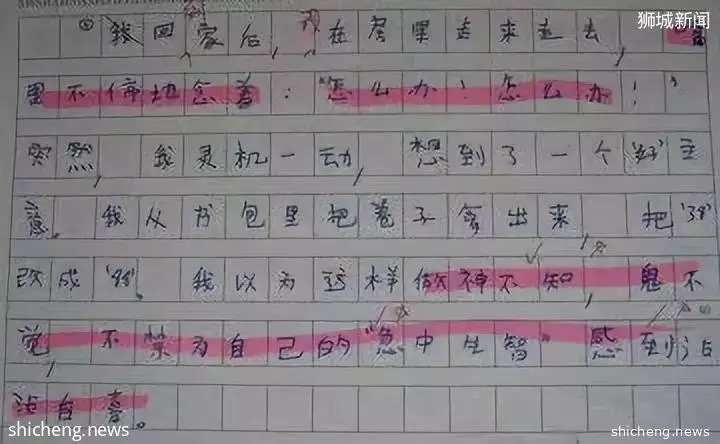 狮城新闻
我回到家后，我在房里走来走去，口
里不停地念着：“怎么办！怎么办！”
突然，我灵机一动，想到了一个‘好’主
意。我从书包里把卷子拿出来，把‘38’
改成‘88’。我以为这样做神不知，鬼不
觉，不禁为自己的“急中生智”感到沾
沾自喜。
shicheng.news
shicheng.news